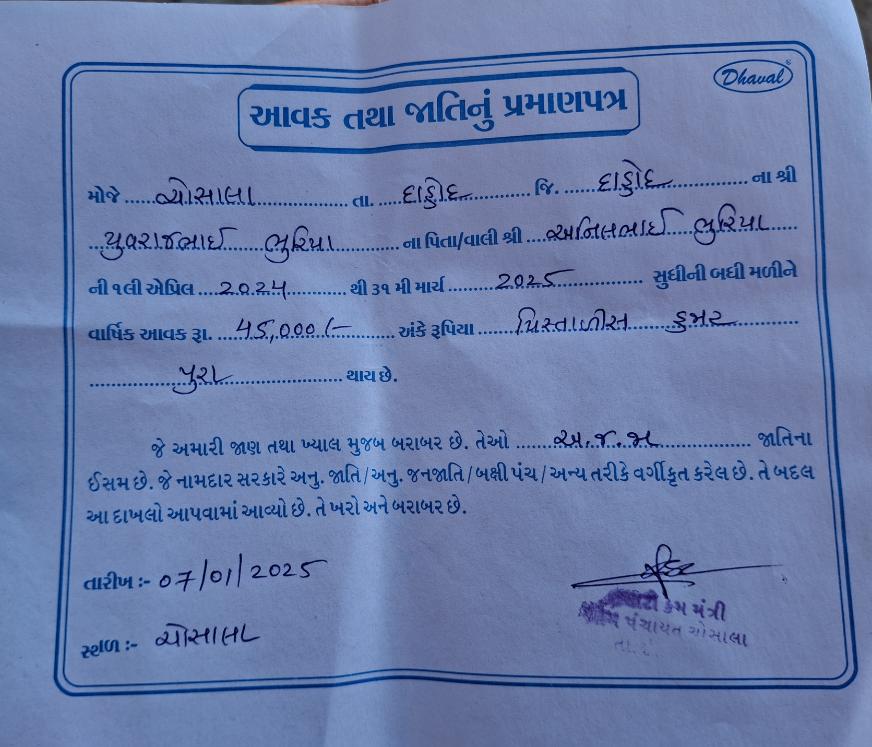 Dhaval
આવક તથા જાતિનું પ્રમાણપત્ર
મોજે ચોસાલા તા. દાહોદ જિ. દાહોદ ના શ્રી
યુવરાજભાઈ ભુરિયા ના પિતા/વાલી શ્રી અનિલભાઈ ભુરિયા
ની ૧લી એપ્રિલ 2024 થી ૩૧ મી માર્ચ 2025 સુધીની બધી મળીને
વાર્ષિક આવક રૂા. 45,000/- અંકે રૂપિયા પિસ્તાળીસ હજાર
પુરા થાય છે.
જે અમારી જાણ તથા ખ્યાલ મુજબ બરાબર છે. તેઓ અ.જ.જા જાતિના
ઈસમ છે. જે નામદાર સરકારે અનુ. જાતિ/અનુ. જનજાતિ/બક્ષી પંચ/અન્ય તરીકે વર્ગીકૃત કરેલ છે. તે બદલ
આ દાખલો આપવામાં આવ્યો છે. તે ખરો અને બરાબર છે.
તારીખ :- 07/01/2025
કમ મંત્રી
પંચાયત ચોસાલા
તા.
સ્થળ :- ચોસાલા